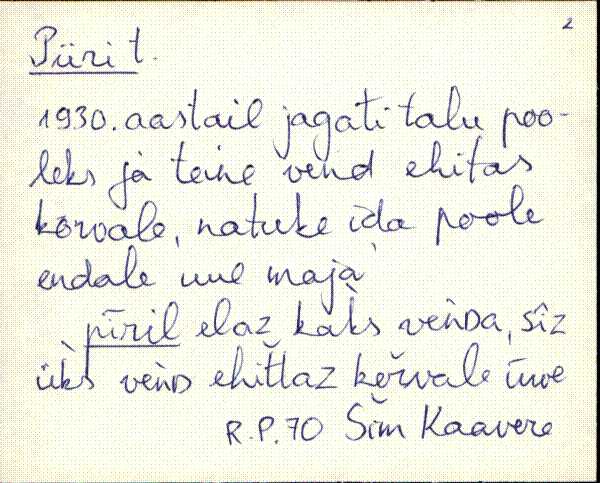 2
Piiri t.
1930. aastail jagati talu poo-
leks ja teine vend ehitas
kõrvale, natuke ida poole
endale uue maja
pīril elaz kàks veǹDa, sîz
ük̀s veǹD ehiťtaz kõrvale ūwe
R.P.70 Sim Kaavere